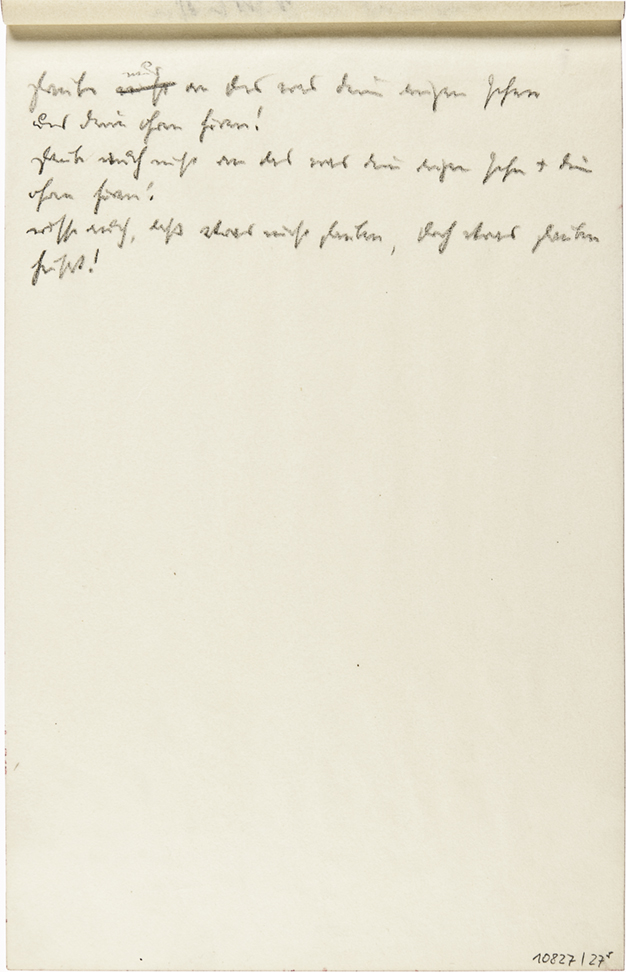 nur
glaube nicht an das was deine augen sehen
und deine ohren hören!
glaube auch nicht an das was deine augen sehn + deine
ohren hören!
wisse auch, daß etwas nicht glauben, doch etwas glauben
heißt!
10827/27r